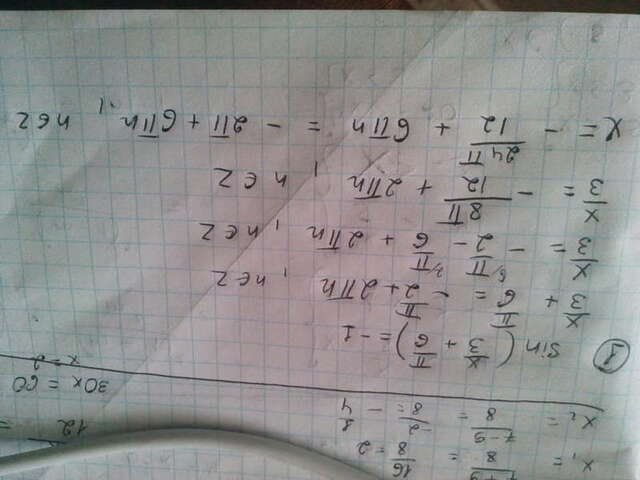 x₁ = 7+9/8 = 16/8 = 2
x₂ = 7-9/8 = -2/8 = -
12 =
30x = 60
x = 2
① sin (x/3 + π/6) = -1
x/3 + π/6 = -π/2 + 2πn, n∈Z
x/3 = -π/2 - π/6 + 2πn, n∈Z
x/3 = -8π/12 + 2πn, n∈Z
x = -24π/12 + 6πn = -2π + 6πn, n∈Z